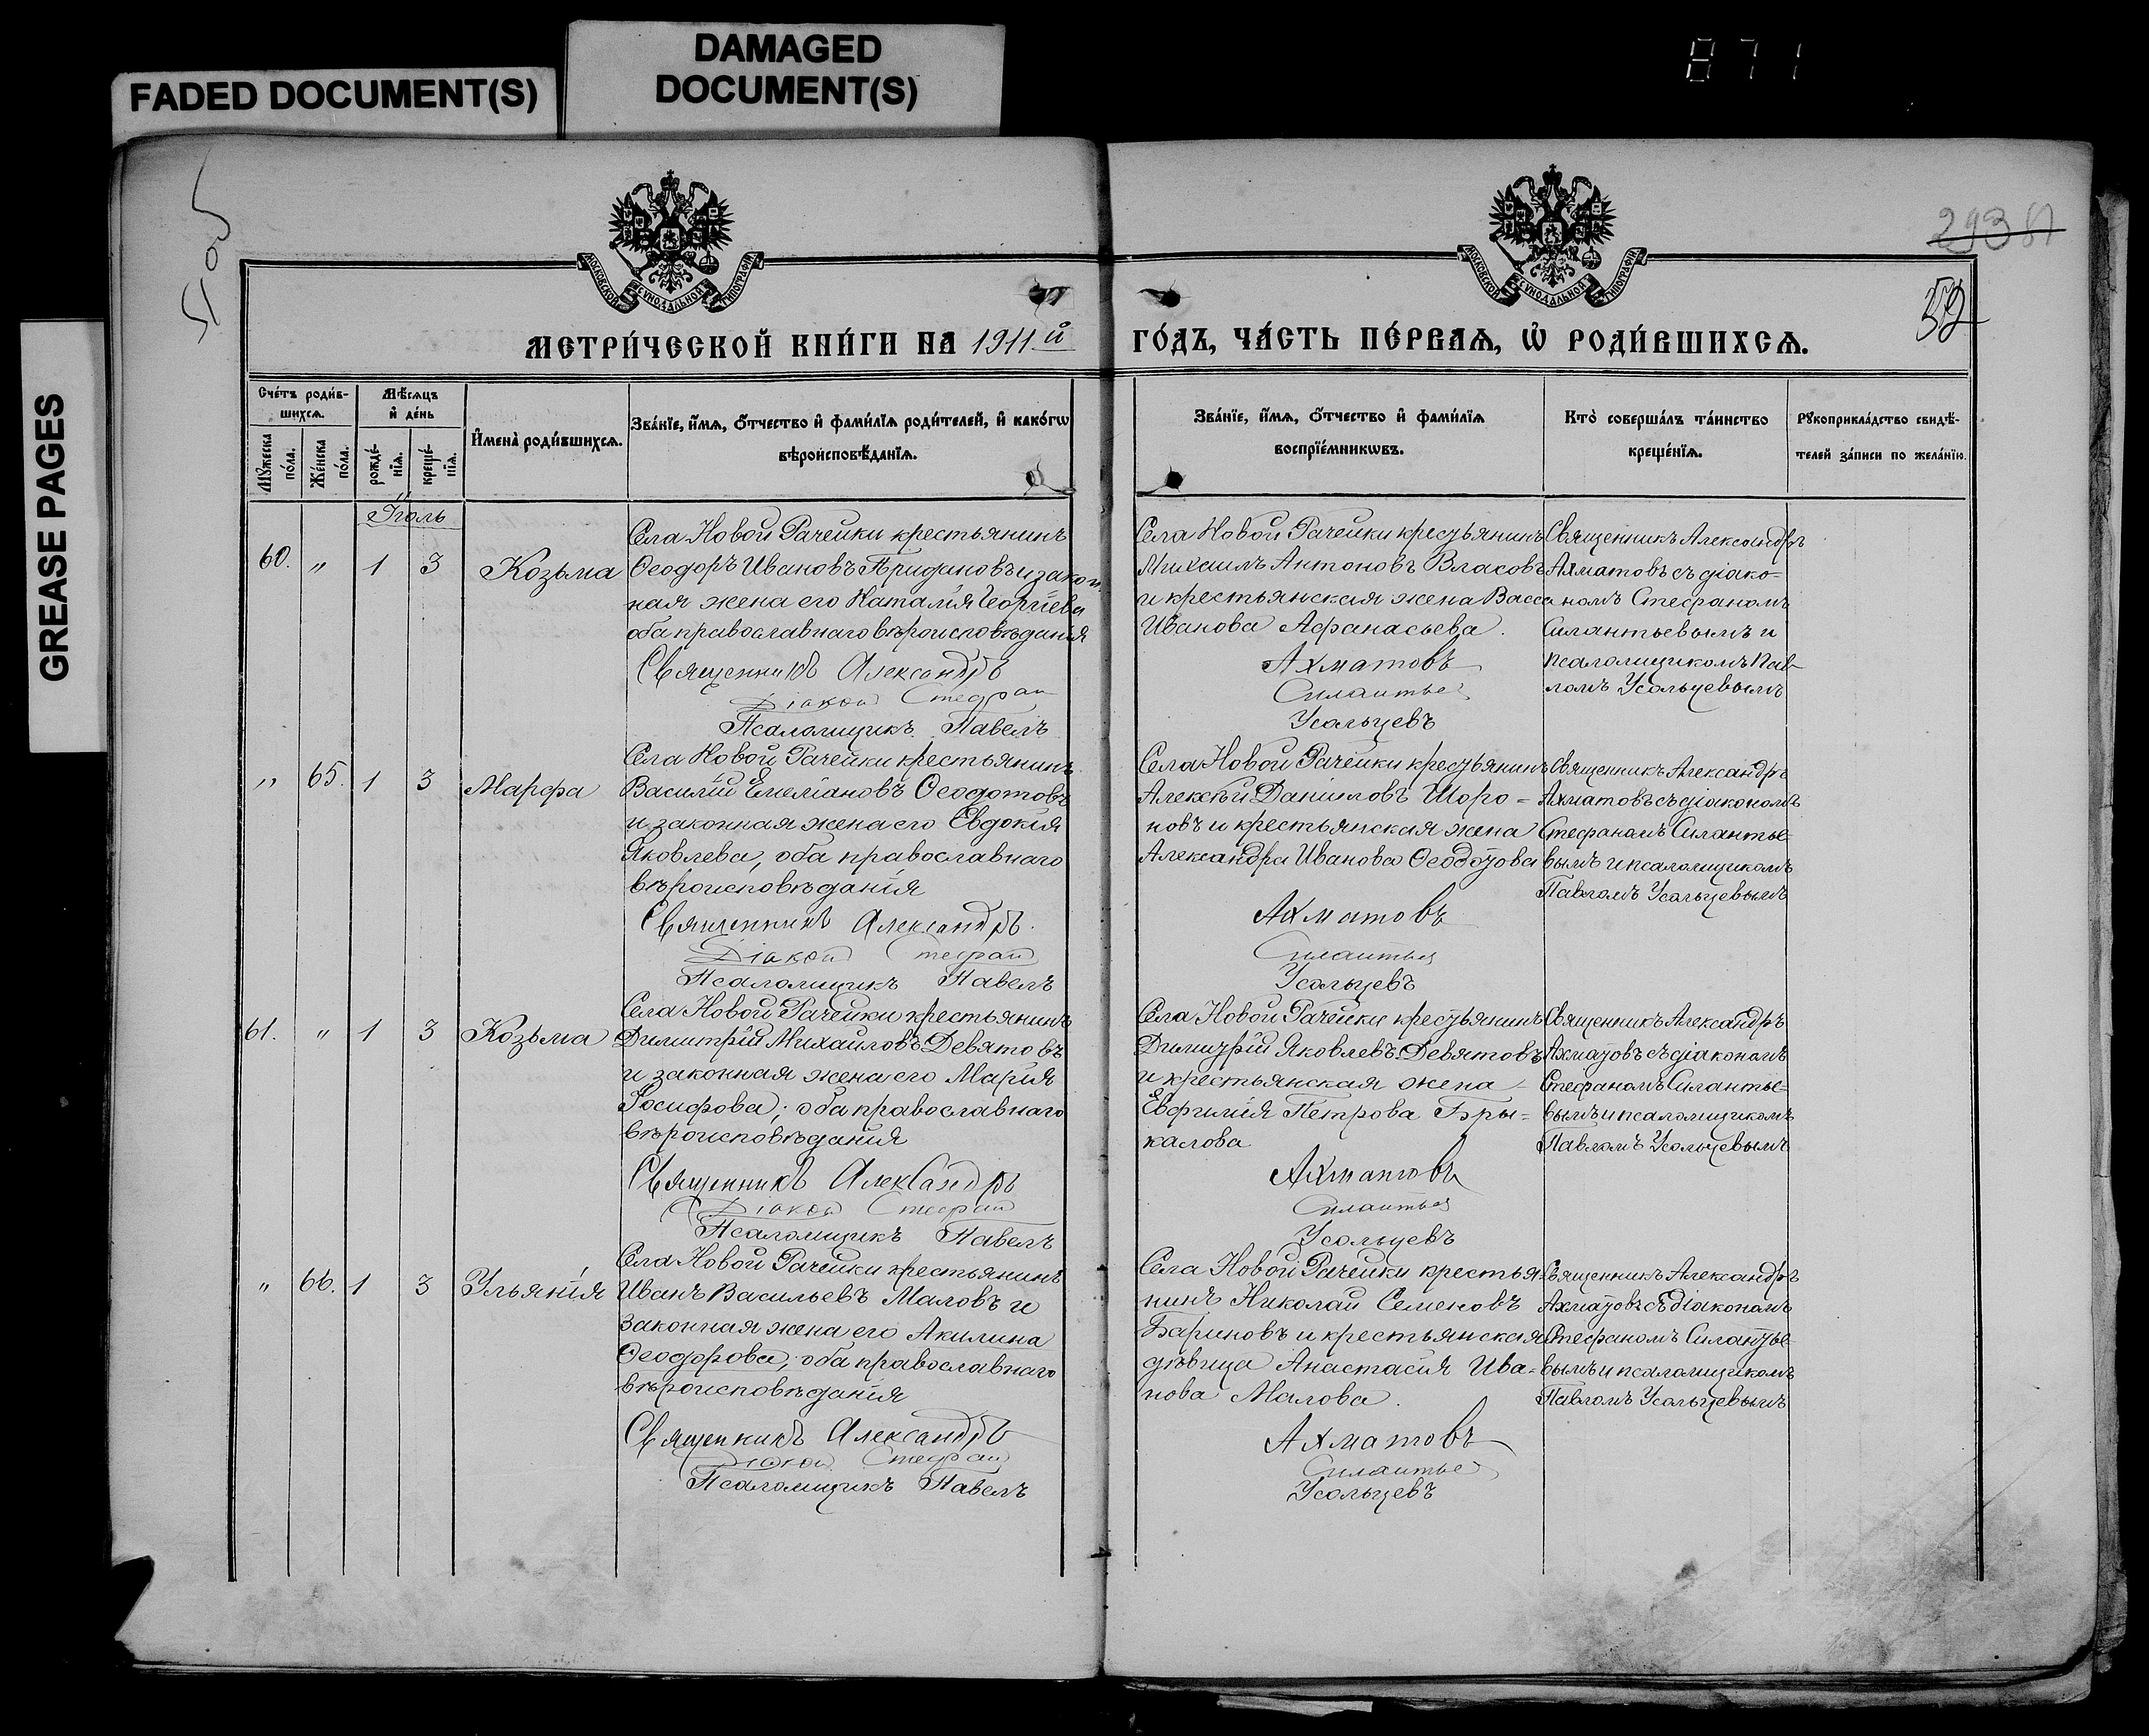 DAMAGED
DOCUMENT(S)
FADED DOCUMENT(S)
GREASE PAGES
871
293
52
МОСКОВСКОЙ СѴНОДАЛЬНОЙ ТИПОГРАФІИ
МОСКОВСКОЙ СѴНОДАЛЬНОЙ ТИПОГРАФІИ
МЕТРИ́ЧЕСКОЙ КНИ́ГИ НА 1911й
ГО́ДЪ, ЧА́СТЬ ПЕ́РВАѦ, Ѡ҆ РОДИ́ВШИХСѦ.
Сче́тъ роди́в-
шихсѧ.
Мꙋ́жеска
по́ла.
Же́нска
по́ла.
Мѣ́сѧцъ
и҆ де́нь
рожде́-
нїѧ.
креще́-
нїѧ.
И҆мена̀ роди́вшихсѧ.
Зва́нїе, и҆́мѧ, ѻ҆́тчество и҆ фами́лїѧ роди́телей, и҆ како́гѡ
вѣроисповѣ́данїѧ.
Зва́нїе, и҆́мѧ, ѻ҆́тчество и҆ фами́лїѧ
воспрїе́мникѡвъ.
Кто̀ соверша́лъ та́инство
креще́нїѧ.
Рꙋкоприкла́дство свидѣ́-
телей за́писи по жела́нїю.
Іюль
60. " 1 3 Козьма
Села Новой Рачейки крестьянинъ
Ѳеодоръ Ивановъ Придановъ и закон
ная жена его Наталія Георгіева
оба православнаго вѣроисповѣданія
Священникъ Александръ
Діакон Стефан
Псаломщикъ Павелъ
Села Новой Рачейки крестьянинъ
Михаилъ Антоновъ Власовъ
и крестьянская жена Васса
Иванова Афанасьева.
Ахматовъ
Силантьев
Усольцевъ
Священникъ Александръ
Ахматовъ съ діако-
номъ Стефаномъ
Силантьевымъ и
псаломщикомъ Пав-
ломъ Усольцевымъ
" 65. 1 3 Марфа
Села Новой Рачейки крестьянинъ
Василій Емеліановъ Ѳеодотовъ
и законная жена его Евдокія
Яковлева, оба православнаго
вѣроисповѣданія
Священникъ Александръ.
Діакон Стефан
Псаломщикъ Павелъ
Села Новой Рачейки крестьянинъ
Алексѣй Даниловъ Шоро=
новъ и крестьянская жена
Александра Иванова Ѳеодотова
Ахматовъ
Силантьев
Усольцевъ
Священникъ Александръ
Ахматовъ съ діакономъ
Стефаномъ Силантье-
вымъ и псаломщикомъ
Павломъ Усольцевымъ
61. " 1 3 Козьма
Села Новой Рачейки крестьянинъ
Димитрій Михайловъ Девятовъ
и законная жена его Марія
Іосифова; оба православнаго
вѣроисповѣданія
Священникъ Александръ
Діакон Стефан
Псаломщикъ Павелъ
Села Новой Рачейки крестьянинъ
Димитрій Яковлевъ Девятовъ
и крестьянская жена
Евфимія Петрова Бры=
калова
Ахматовъ
Силантьев
Усольцевъ
Священникъ Александръ
Ахматовъ съ діакономъ
Стефаномъ Силантье-
вымъ и псаломщикомъ
Павломъ Усольцевымъ
" 66. 1 3 Ульянія
Села Новой Рачейки крестьянинъ
Иванъ Васильевъ Маловъ и
законная жена его Акилина
Ѳеодорова, оба православнаго
вѣроисповѣданія
Священникъ Александръ
Діакон Стефан
Псаломщикъ Павелъ
Села Новой Рачейки крестья=
нинъ Николай Семеновъ
Бариновъ и крестьянская
дѣвица Анастасія Ива=
нова Малова.
Ахматовъ
Силантьев
Усольцевъ
Священникъ Александръ
Ахматовъ съ діакономъ
Стефаномъ Силантье-
вымъ и псаломщикомъ
Павломъ Усольцевымъ